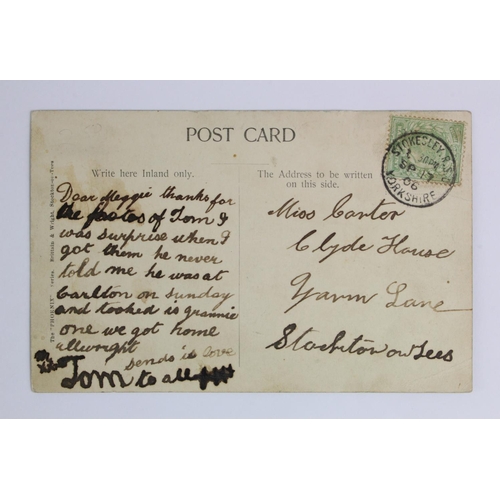 POST CARD
Write here Inland only.
The Address to be written
on this side.
The "PHOENIX" Series. Brittain & Wright, Stockton-on-Tees
STOKESLEY R.S.O.
SP 17
06
YORKSHIRE
Dear Meggie thanks for
the photos of Tom I
was surprise when I
got them he never
told me he was at
Carlton on sunday
and tooked is grannie
one we got home
allwright
sends is love
Tom to all
Miss Carter
Clyde House
Yarm Lane
Stockton on Tees